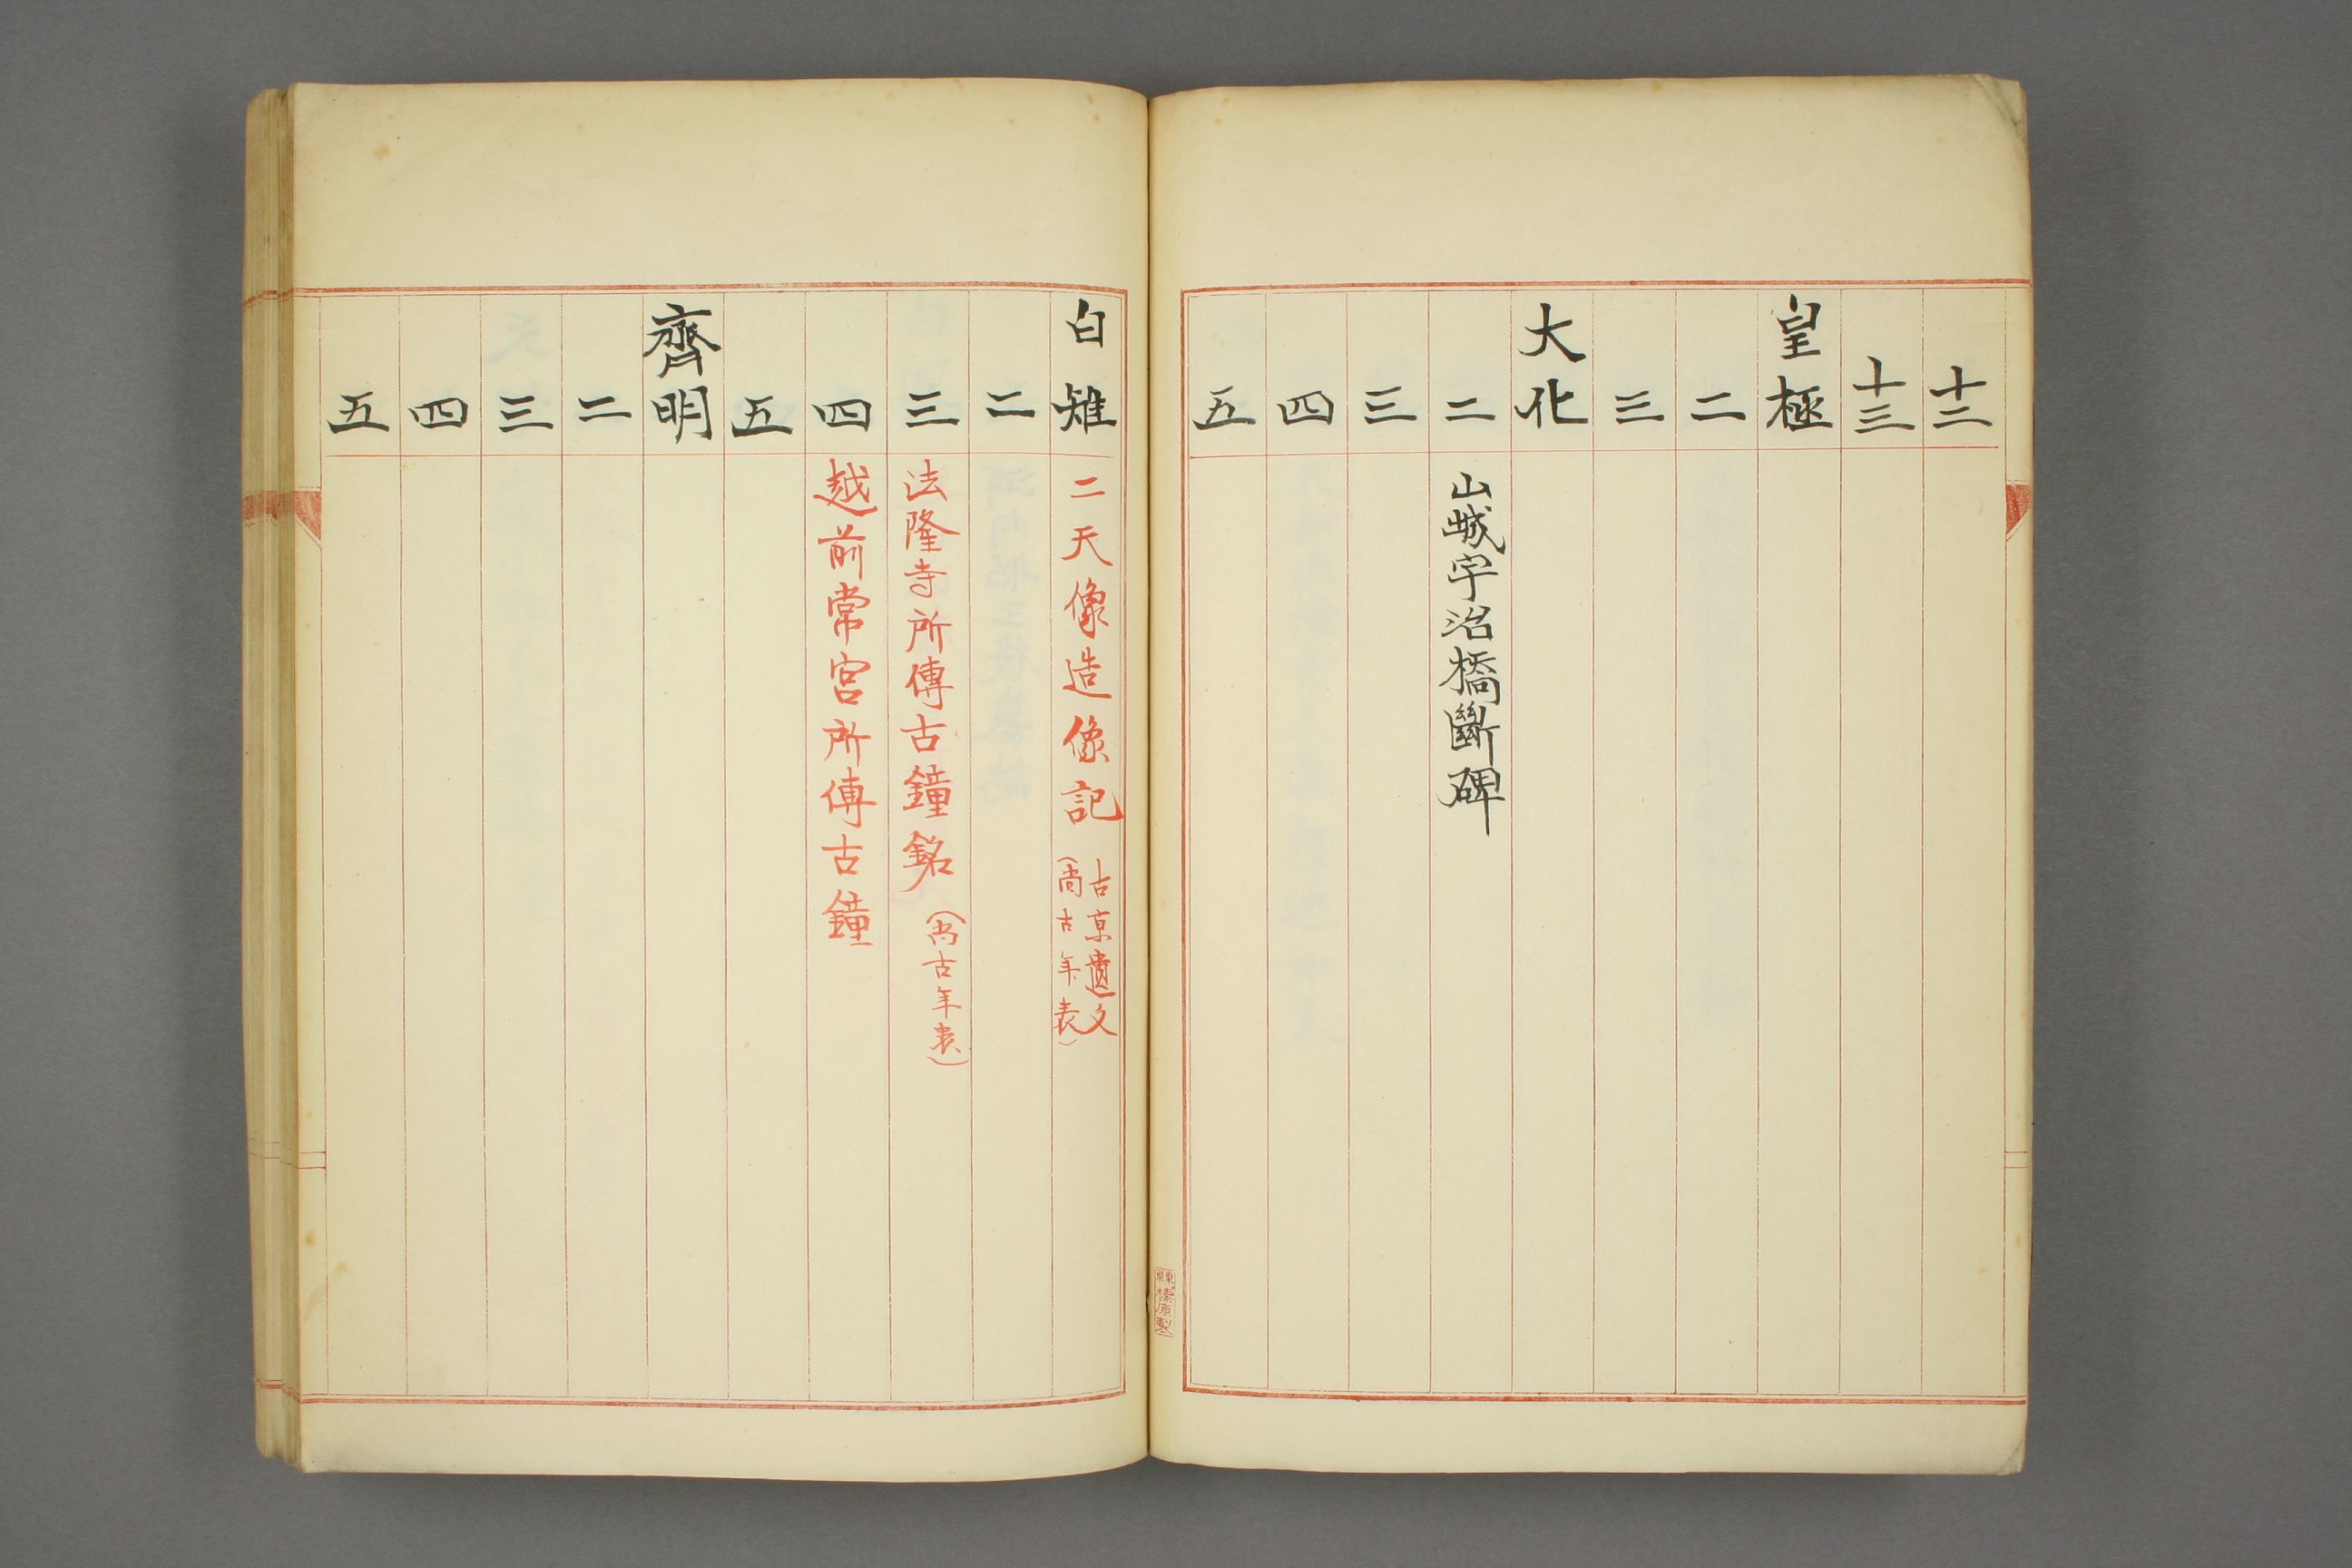 十二
十三
皇極
二
三
大化
二 山城宇治橋斷碑
三
四
五
白雉 二天像造像記 古京遺文 (尚古年表)
二
三 法隆寺所傳古鐘銘 (尚古年表)
四 越前常宮所傳古鐘
五
齊明
二
三
四
五
榛原製